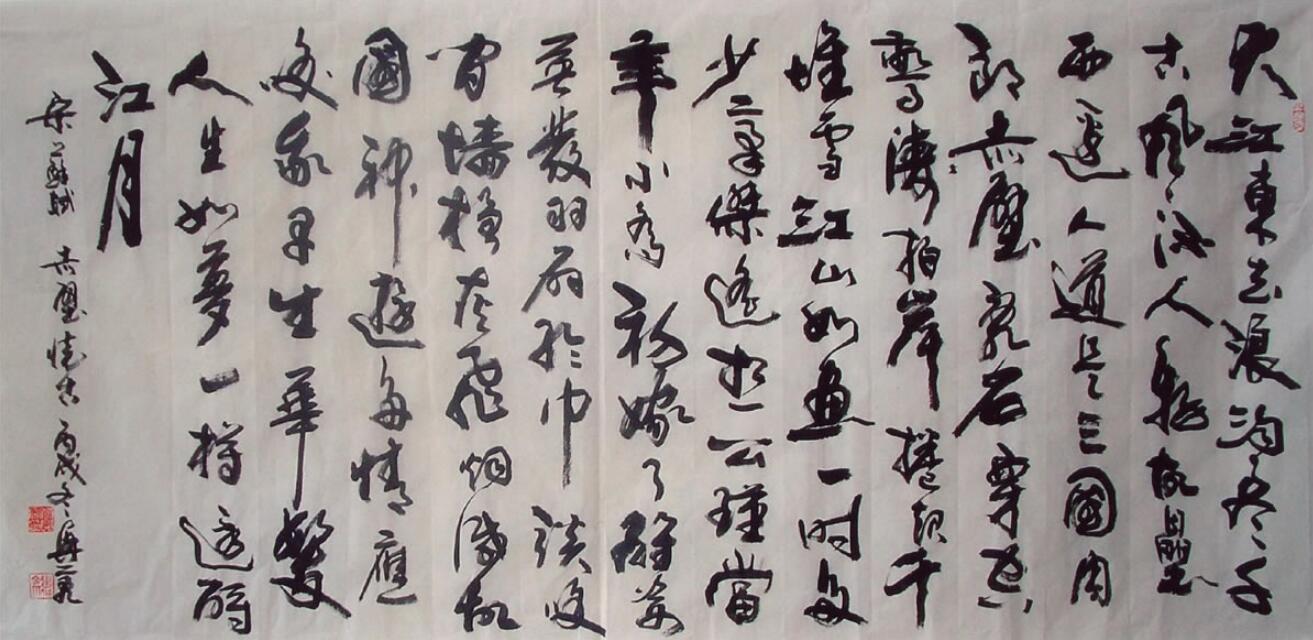 大江東去浪淘尽千
古風流人物故壘
西邊人道是三國周
郎赤壁亂石穿空
驚濤拍岸捲起千
堆雪江山如畫一時多
少豪傑遙想公瑾當
年小喬初嫁了雄姿
英發羽扇綸巾談笑
間墻櫓灰飛烟滅故
國神遊多情應
笑我早生華髮
人生如夢一樽還酹
江月
宋蘇軾 赤壁懷古 丙戌冬